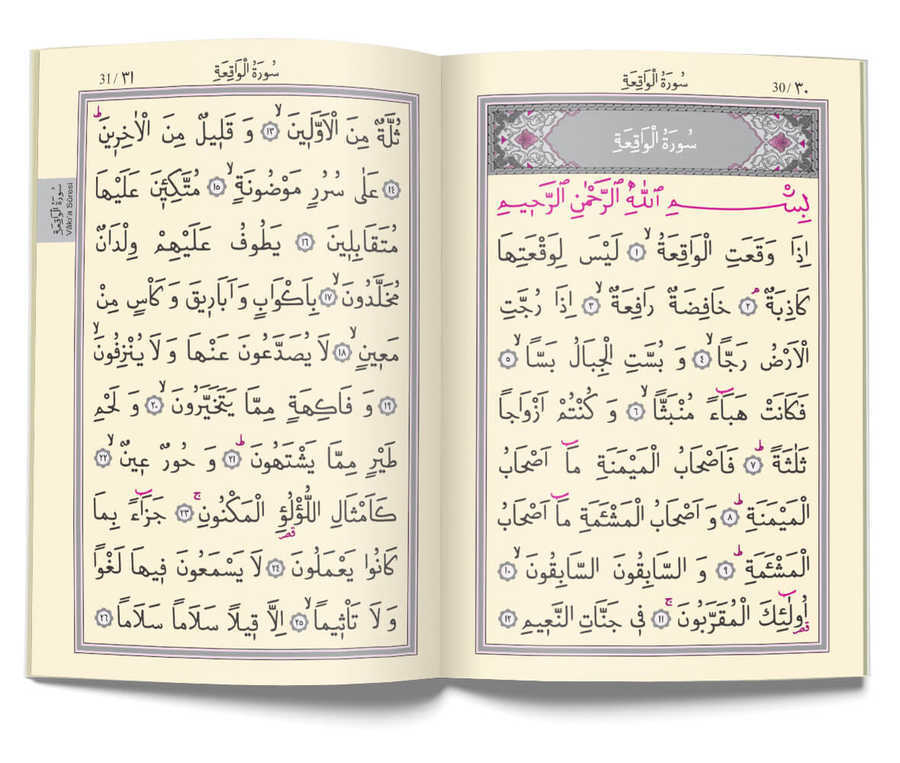 سُورَةُ الْوَاقِعَةِ
30/ ٣٠
سُورَةُ الْوَاقِعَةِ
بِسْمِ اللّٰهِ الرَّحْمٰنِ الرَّحِيمِ
اِذَا وَقَعَتِ الْوَاقِعَةُ ۙ ﴿١﴾ لَيْسَ لِوَقْعَتِهَا
كَاذِبَةٌ ۢ ﴿٢﴾ خَافِضَةٌ رَافِعَةٌ ۙ ﴿٣﴾ اِذَا رُجَّتِ
الْاَرْضُ رَجًّا ۙ ﴿٤﴾ وَ بُسَّتِ الْجِبَالُ بَسًّا ۙ ﴿٥﴾
فَكَانَتْ هَبَاءً مُنْبَثًّا ۙ ﴿٦﴾ وَ كُنْتُمْ اَزْوَاجًا
ثَلٰثَةً ۜ ﴿٧﴾ فَاَصْحَابُ الْمَيْمَنَةِ مَا اَصْحَابُ
الْمَيْمَنَةِ ﴿٨﴾ وَ اَصْحَابُ الْمَشْئَمَةِ مَا اَصْحَابُ
الْمَشْئَمَةِ ﴿٩﴾ وَ السَّابِقُونَ السَّابِقُونَ ۙ ﴿١٠﴾
اُولٰئِكَ الْمُقَرَّبُونَ ۚ ﴿١١﴾ فِي جَنَّاتِ النَّعِيمِ ﴿١٢﴾
31/ ٣١
سُورَةُ الْوَاقِعَةِ
ثُلَّةٌ مِنَ الْاَوَّلِينَ ۙ ﴿١٣﴾ وَ قَلِيلٌ مِنَ الْاٰخِرِينَ
﴿١٤﴾ عَلٰى سُرُرٍ مَوْضُونَةٍ ۙ ﴿١٥﴾ مُتَّكِئِينَ عَلَيْهَا
مُتَقَابِلِينَ ﴿١٦﴾ يَطُوفُ عَلَيْهِمْ وِلْدَانٌ
مُخَلَّدُونَ ۙ ﴿١٧﴾ بِاَكْوَابٍ وَ اَبَارِيقَ وَ كَأْسٍ مِنْ
مَعِينٍ ۙ ﴿١٨﴾ لَا يُصَدَّعُونَ عَنْهَا وَ لَا يُنْزِفُونَ ۙ
﴿١٩﴾ وَ فَاكِهَةٍ مِمَّا يَتَخَيَّرُونَ ۙ ﴿٢٠﴾ وَ لَحْمِ
طَيْرٍ مِمَّا يَشْتَهُونَ ﴿٢١﴾ وَ حُورٌ عِينٌ ۙ ﴿٢٢﴾
كَاَمْثَالِ اللُّؤْلُؤِ الْمَكْنُونِ ۚ ﴿٢٣﴾ جَزَاءً بِمَا
كَانُوا يَعْمَلُونَ ﴿٢٤﴾ لَا يَسْمَعُونَ فِيهَا لَغْوًا
وَ لَا تَأْثِيمًا ۙ ﴿٢٥﴾ اِلَّا قِيلًا سَلَامًا سَلَامًا ﴿٢٦﴾
سُورَةُ الْوَاقِعَةِ
Vâkı'a Sûresi